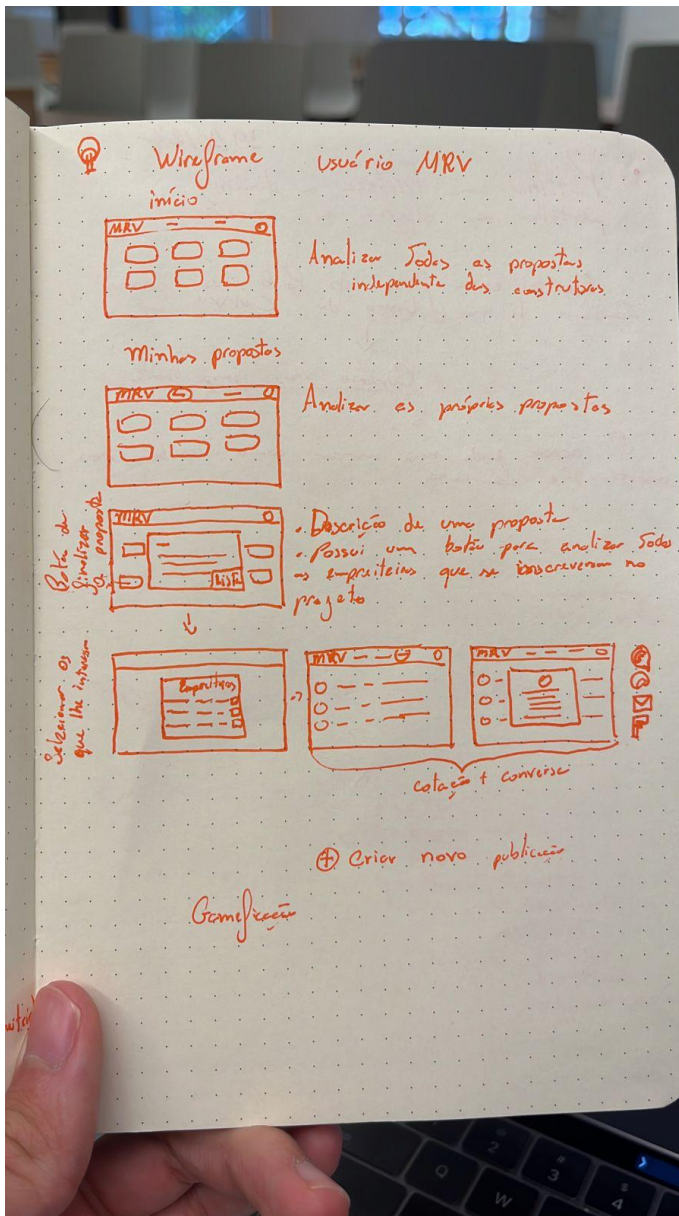 Wireframe usuário MRV
início
MRV
Analizar Todas as propostas
independente das construtoras
Minhas propostas
MRV
Analizar as próprias propostas
Botão de
finalizar
a proposta
MRV
LISTA
• Descrição de uma proposta
• Possui um botão para analizar Todos
os empreiteiros que se inscreveram no
projeto
Selecionar os
que lhe interessam
Empreiteiros
MRV
MRV
cotação + conversa
+ Criar novo publicação
Gameficação